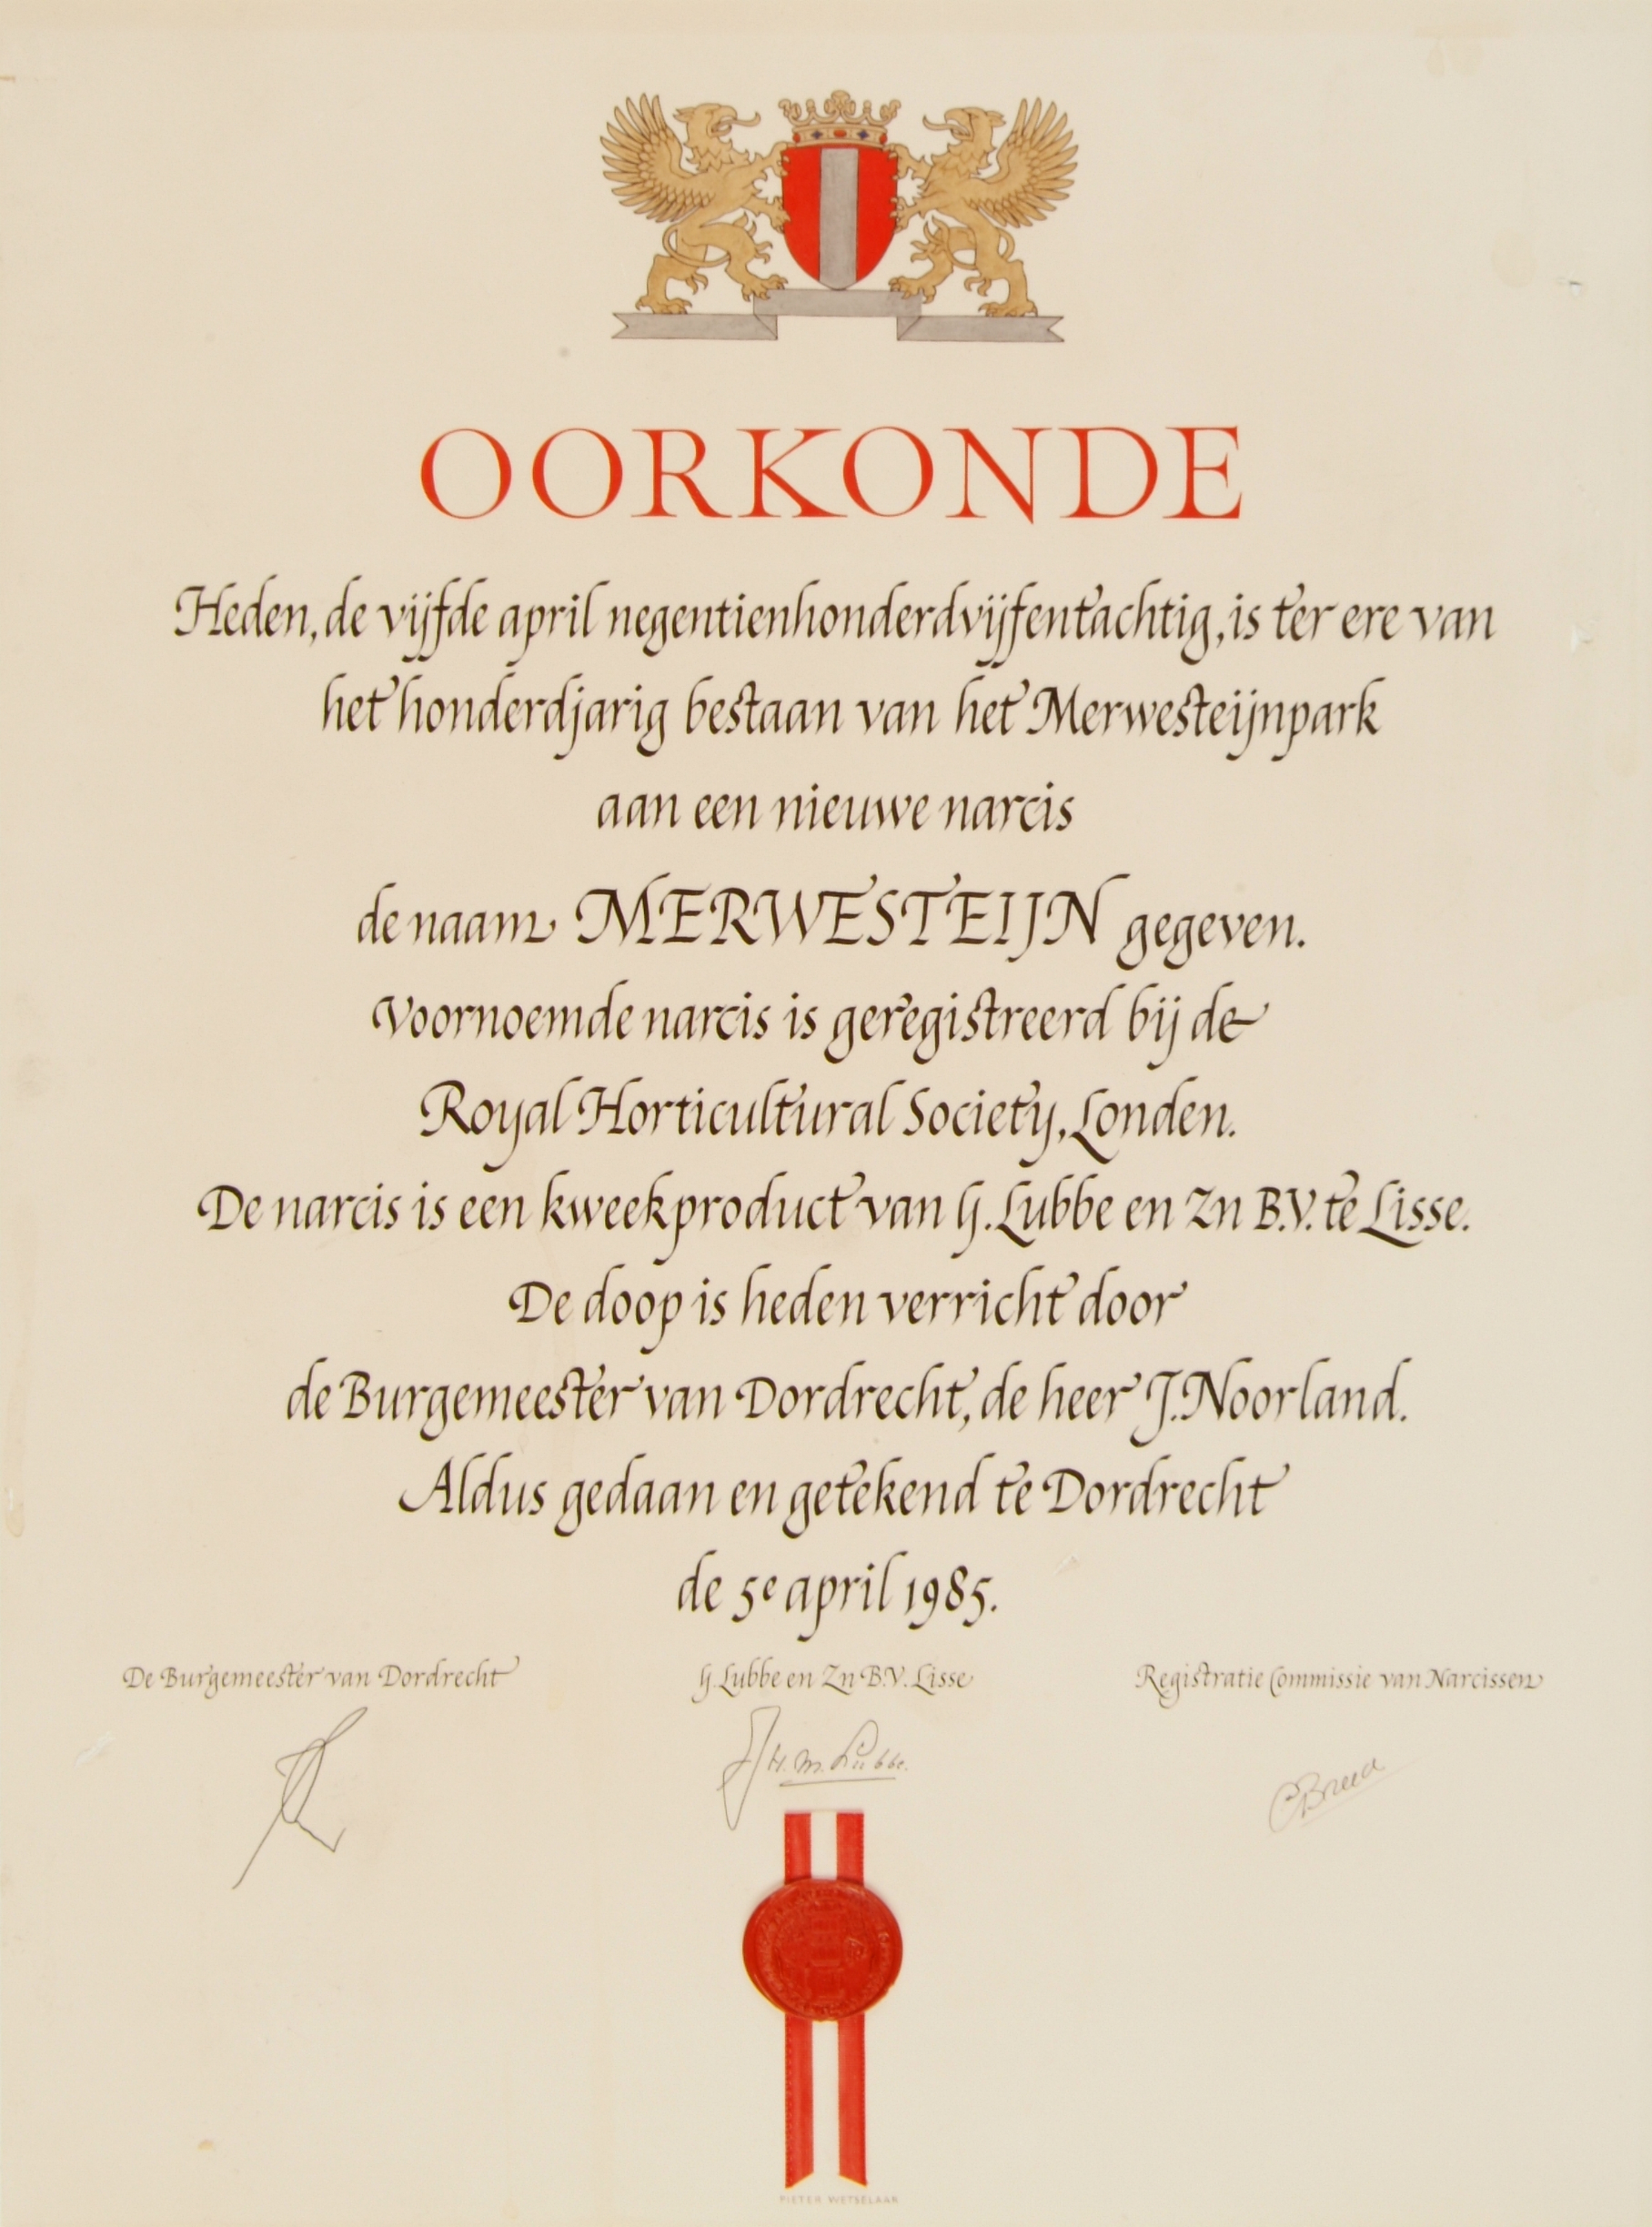 OORKONDE
Heden, de vijfde april negentienhonderdvijfentachtig, is ter ere van
het honderdjarig bestaan van het Merwesteijnpark
aan een nieuwe narcis
de naam MERWESTEIJN gegeven.
Voornoemde narcis is geregistreerd bij de
Royal Horticultural Society, Londen.
De narcis is een kweekproduct van G. Lubbe en Zn B.V. te Lisse.
De doop is heden verricht door
de Burgemeester van Dordrecht, de heer J. Noorland.
Aldus gedaan en getekend te Dordrecht
de 5e april 1985.
De Burgemeester van Dordrecht
G. Lubbe en Zn B.V. Lisse
Registratie Commissie van Narcissen
H. M. Lubbe.
PIETER WETSELAAR